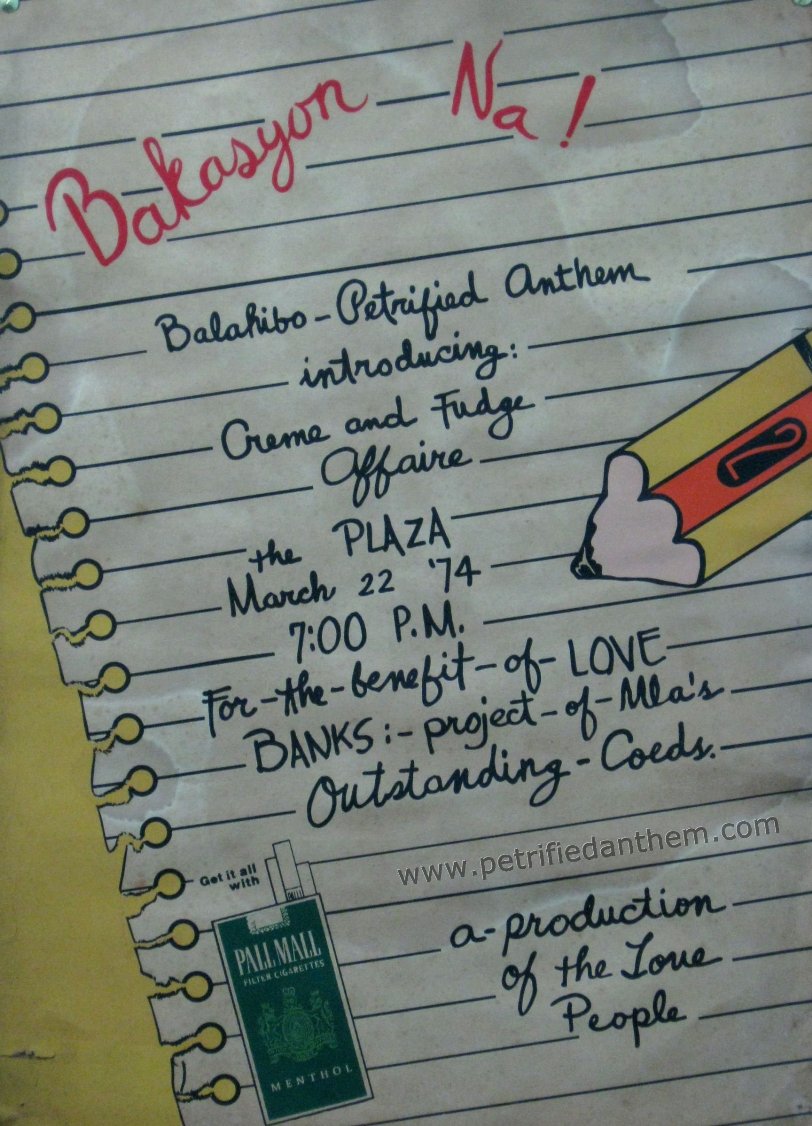 Bakasyon Na!
Balahibo-Petrified Anthem
introducing:
Creme and Fudge
Affaire
2
the PLAZA
March 22 '74
7:00 P.M.
For-the-benefit-of-LOVE
BANKS:-project-of-Mla's
Outstanding-Coeds.
www.petrifiedanthem.com
Get it all
with
PALL MALL
FILTER CIGARETTES
MENTHOL
a-production
of the Love
People